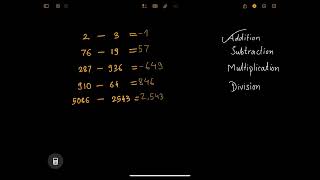 2 – 3 = -1
76 – 19 = 57
287 – 936 = -649
910 – 64 = 846
5086 – 2543 = 2,543
Addition
Subtraction
Multiplication
Division